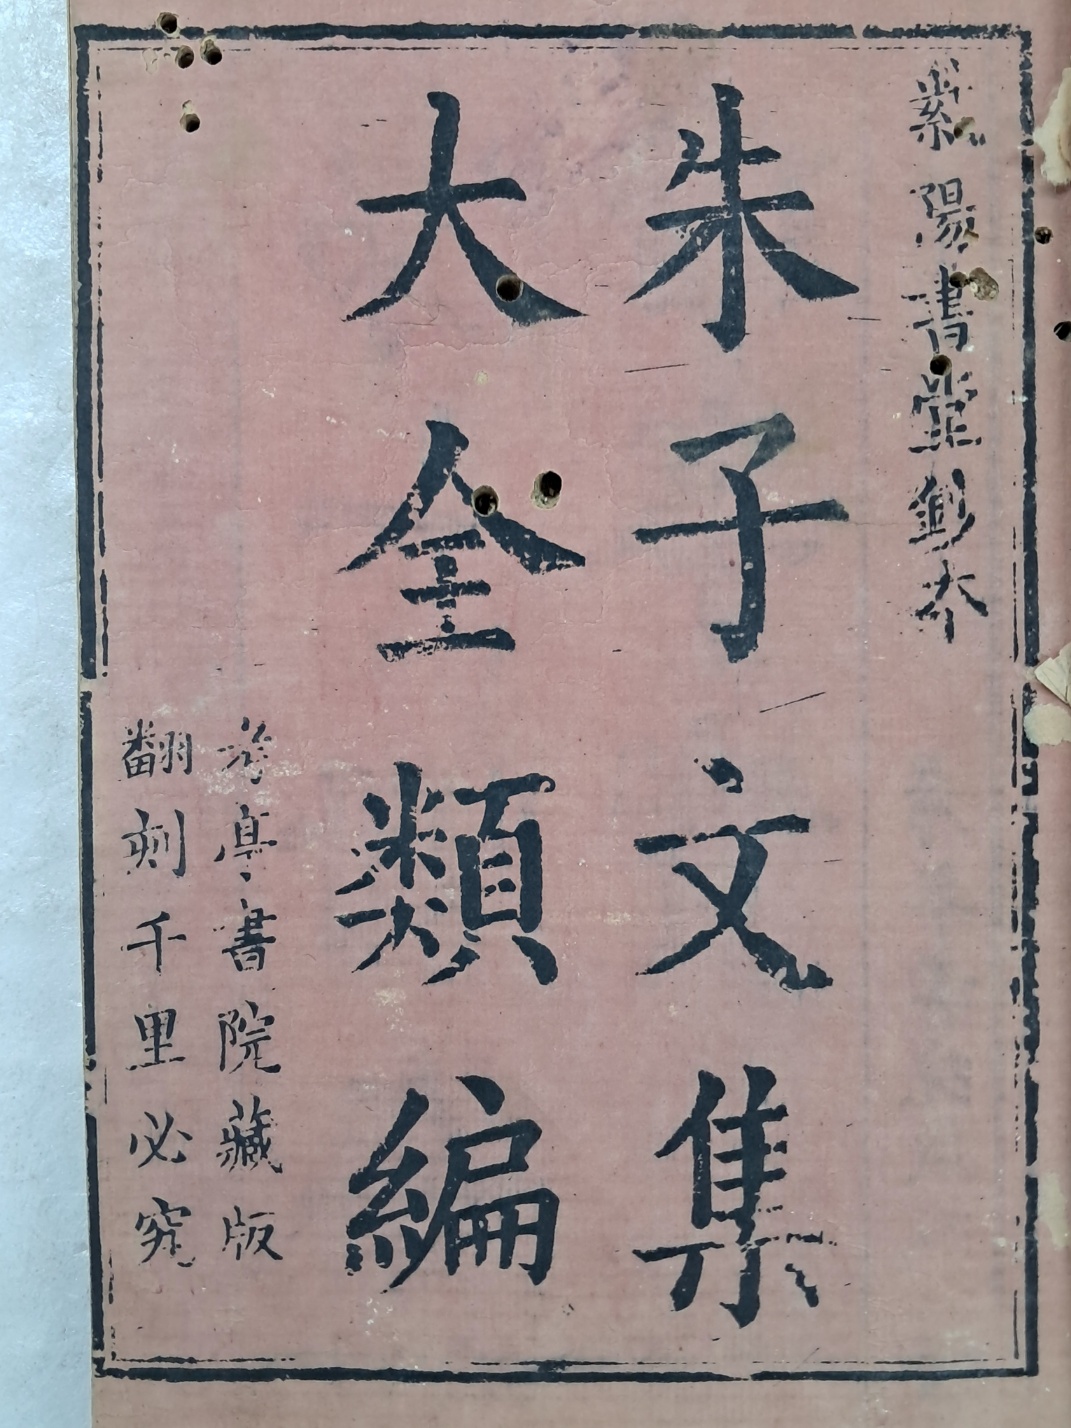 紫陽書堂本
朱子文集
大全類編
考亭書院藏版
翻刻千里必究